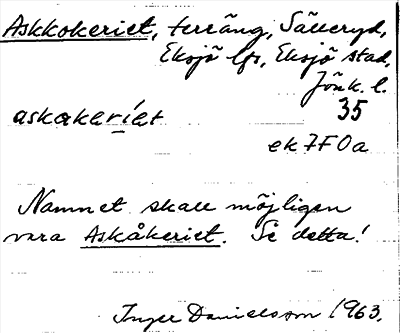 Askkokeriet, terräng, Sälleryd,
Eksjö lfs, Eksjö stad,
Jönk. l.
35
askakeríet
ek 7F0a
Namnet skall möjligen
vara Askåkeriet. Se detta!
Inger Danielsson 1963.